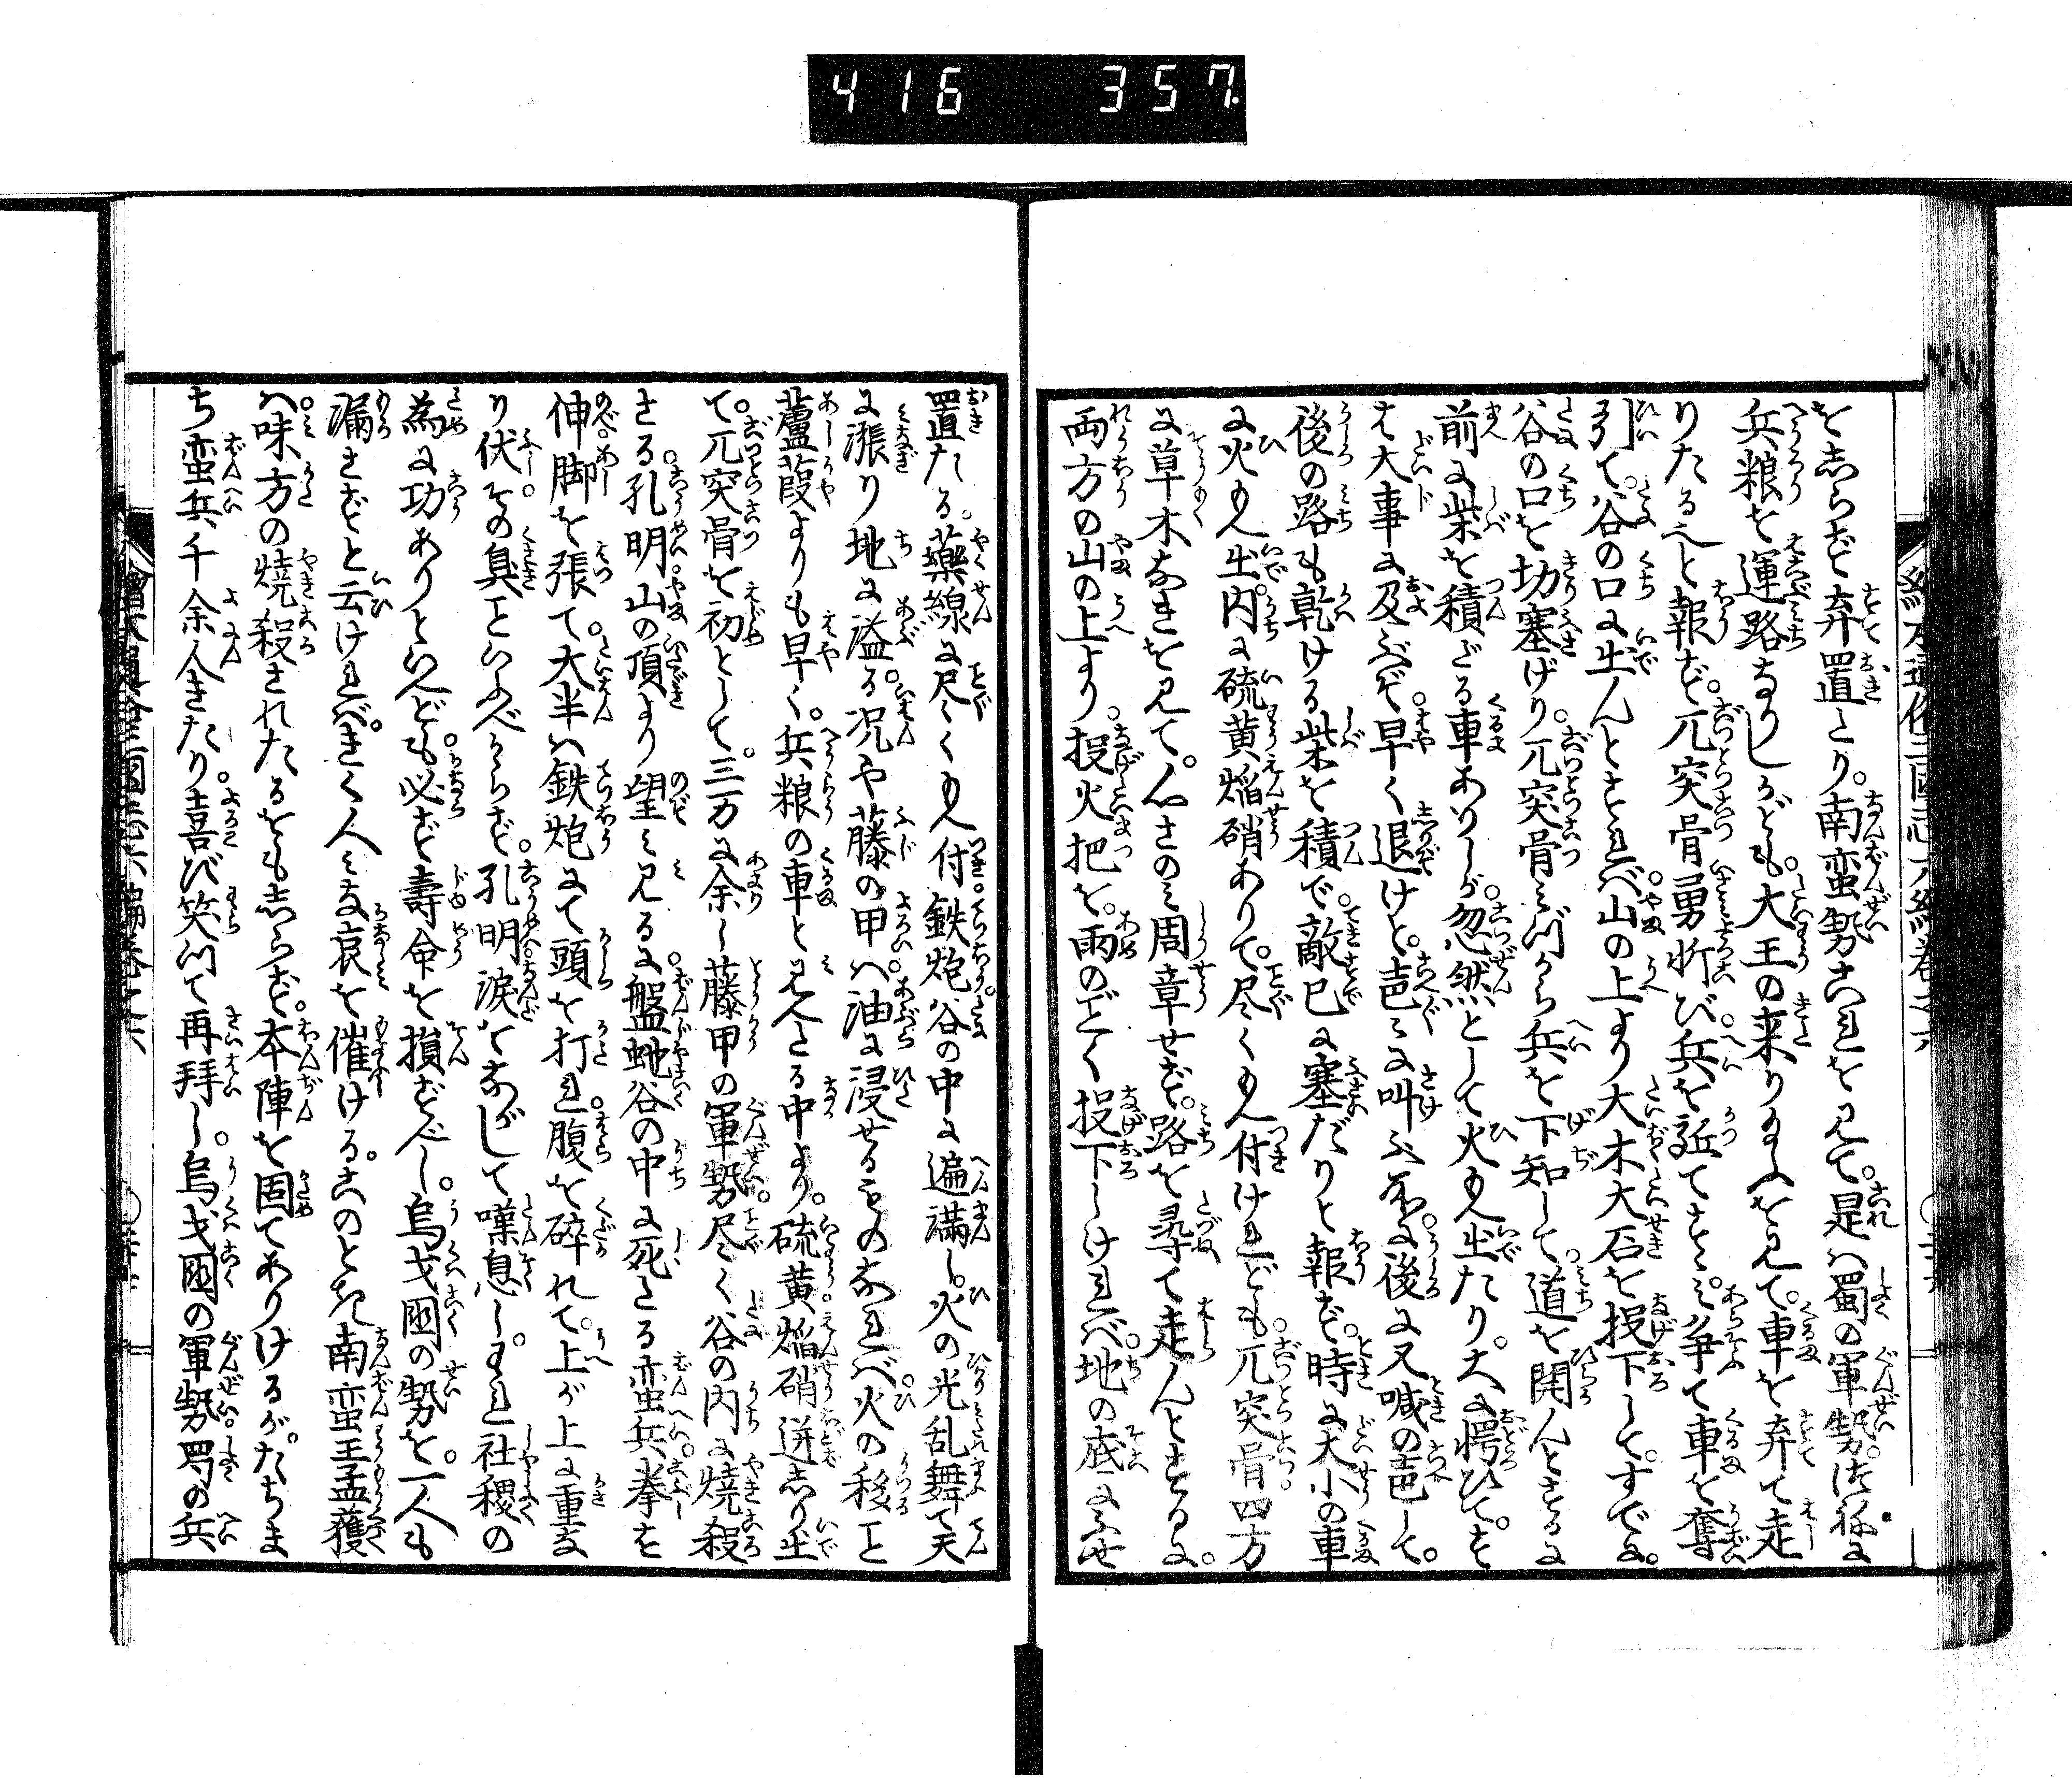 416 357
をしらず弃置たり。南蛮勢これを見て。是ハ蜀の軍勢。つねに
兵粮を運路なりしかども。大王の来り給ふを見て。車を弃て走
りたるへと報ず。兀突骨勇折び兵を
引て。谷の口に出んとすれバ山の上より大木大石を投下して。すでに。
谷の口を切塞げり。兀突骨ミづから兵を下知して。道を開んとするに
前に柴を積ざる車ありしが。忽然として火もえ出たり。大に愕ひて。す
は大事に及ぶぞ。早く退けと。声々に叫ぶ所に。後に又喊の声して。
後の路も乾ける柴を積で。敵已に塞だりと報ず。時に大小の車
に火もえ出。内に硫黄焔硝ありて。尽くもえ付けれども。兀突骨四方
に草木なきを見て。心さのミ周章せず。路を尋て走んとするに。
両方の山の上より。投火把を。雨のごとく投下しけれバ。地の底にふせ
置たる。藥線に尽くもえ付。鉄炮谷の中に遍満し。火の光乱舞て天
に漲り地に溢る。况や藤の甲ハ油に浸せるものなれバ。火の移こと
蘆葭よりも早く。兵粮の車と見えたる中より。硫黄焔硝迸しり出
て。兀突骨を初として。三万に余し藤甲の軍勢。尽く谷の内に燒殺
さる。孔明山の頂より望ミ見るに。盤蛇谷の中に死たる蛮兵。拳を
伸脚を張て。大半ハ鉄炮にて頭を打れ。腹を碎れて。上が上に重な
り伏。その臭こといふべからず。孔明涙をながして嘆息し。われ社稷の
為に功ありといへども。必ず壽命を損ずべし。烏戈國の勢を。一人も
漏さずと云けれバ。きく人ミな哀を催ける。このとき南蛮王孟獲
ハ。味方の燒殺されたるをもしらず。本陣を固てありけるが。たちま
ち蛮兵千余人きたり。喜び笑ツて再拜し。烏戈國の軍勢。蜀の兵